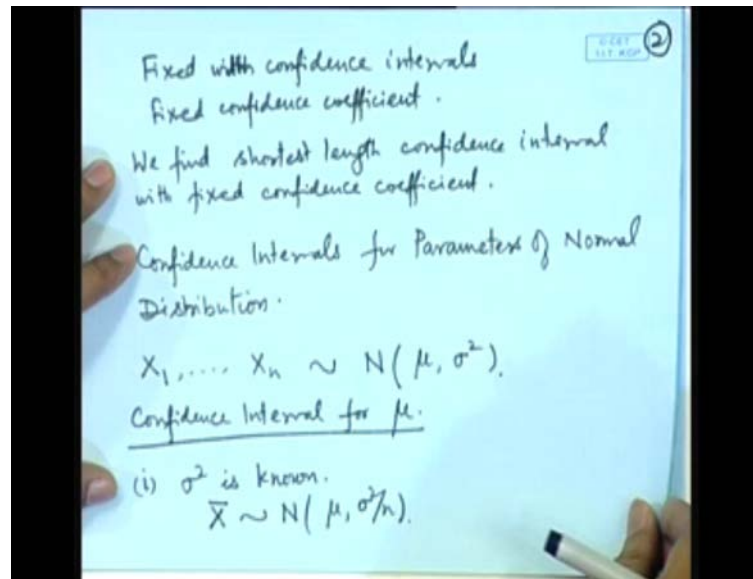 ②
Fixed width confidence intervals
Fixed confidence coefficient.
We find shortest length confidence interval
with fixed confidence coefficient.
Confidence Intervals for Parameters of Normal
Distribution.
X₁, ..., Xₙ ~ N(μ, σ²).
Confidence Interval for μ.
(i) σ² is known.
X̄ ~ N(μ, σ²/n).